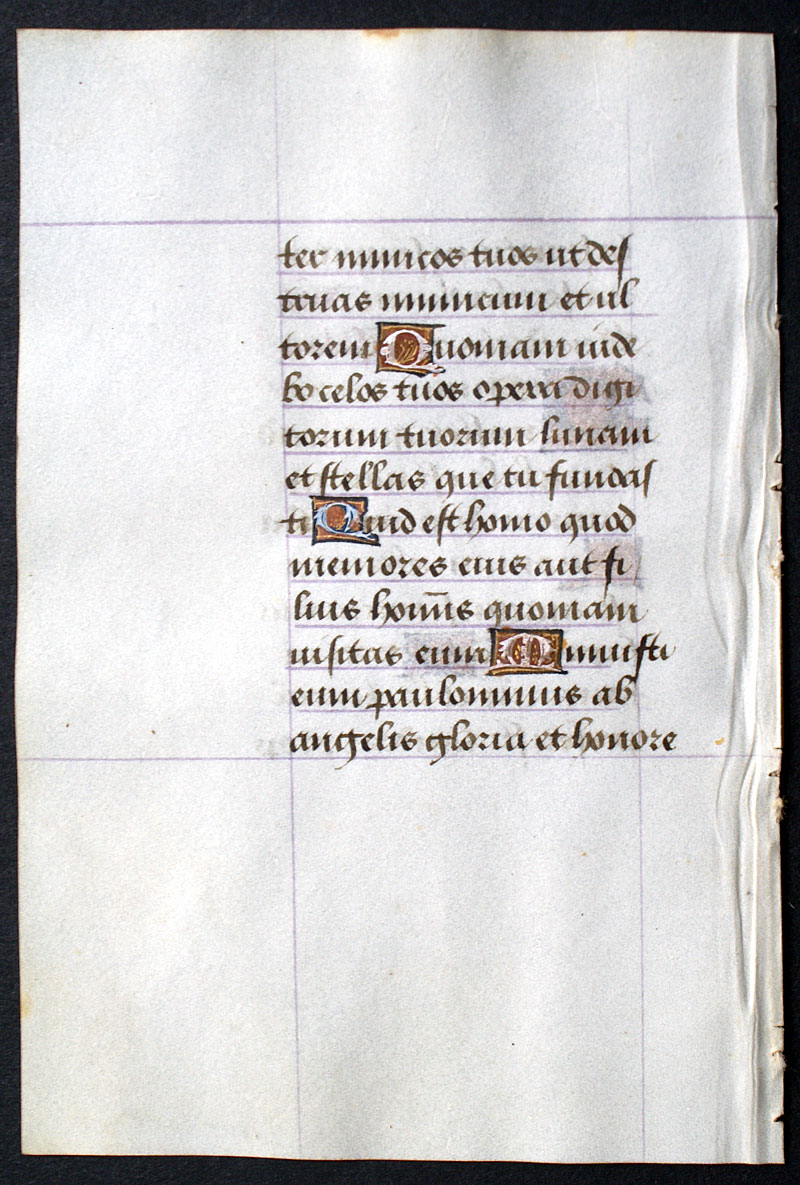 ter inimicos tuos ut des
truas inimicum et ul
torem Quoniam uide
bo celos tuos opera digi
torum tuorum lunam
et stellas que tu fundas
ti Quid est homo quod
memores eius aut fi
lius homīs quoniam
uisitas eum Minuisti
eum paulominus ab
angelis gloria et honore